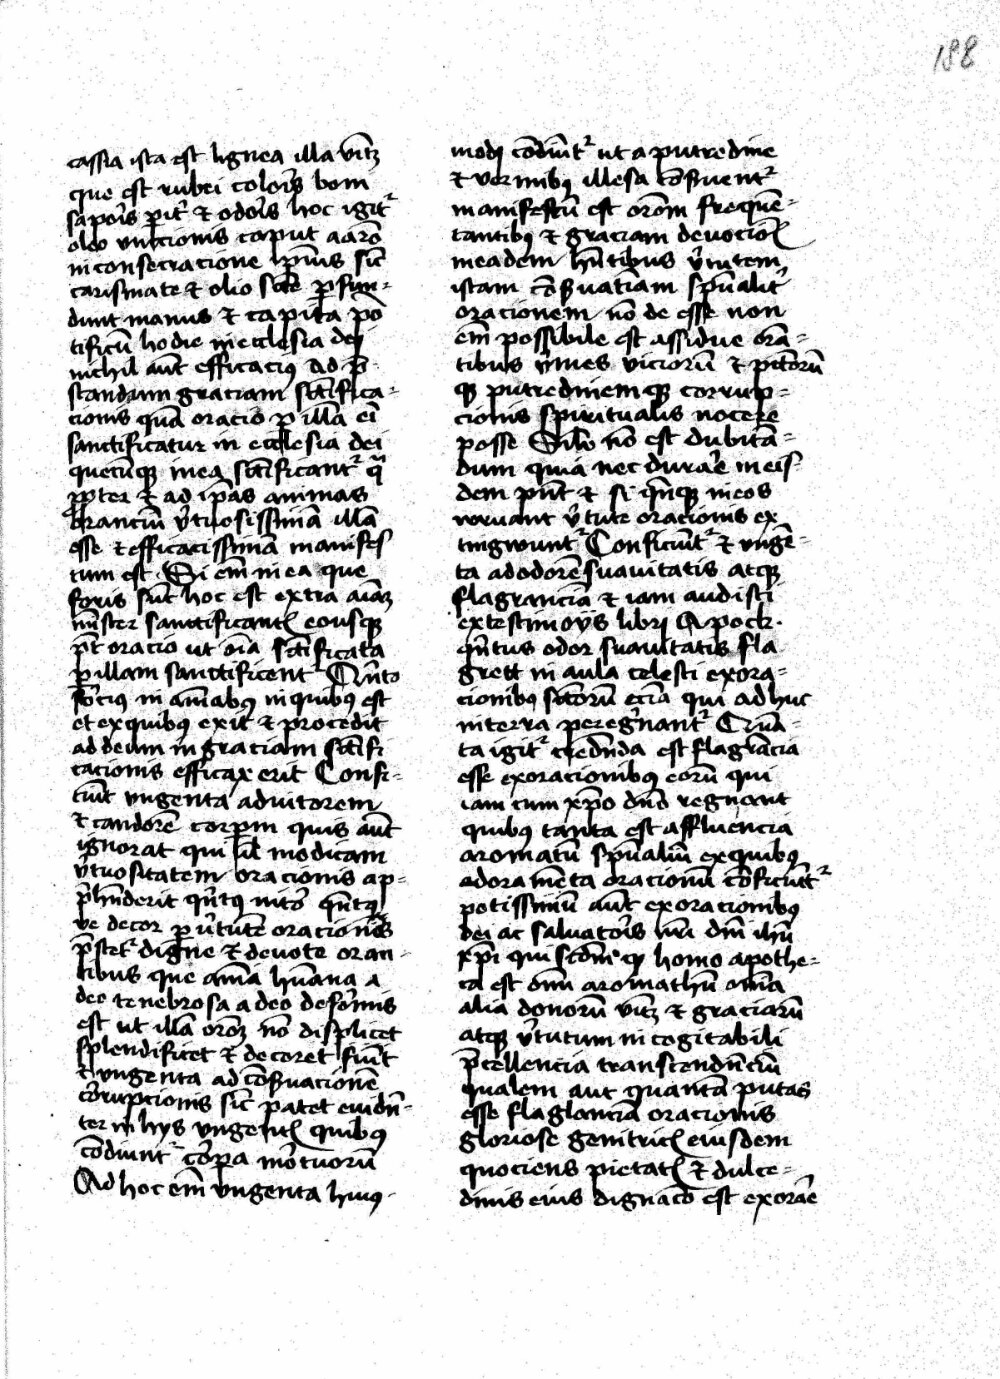 188
cassia ista est lignea illa vītꝫ
que est rubei coloīs boni
sapoīs pitʳ et odoīs hoc igitʳ
oleo vnccionis caput aarō
in consecracione ipius sic̄
carismate et olio scē perfun-
dunt manus et capita pō
tificū hodie in ecclesia dei
nichil aut̄ efficaciꝰ ad p̄-
standum graciam sctīfica-
cionis quā oracio p illā ei
sanctificatur in ecclesia dei
quecūqꝫ in ea sctīficantʳ qꝛ
propter et ad ip̄as animas
oranciū v̄tuosissimā illā
esse et efficacissimā manifes
tum est. Si em̄ in ea que
foris sūt hoc est extra aīaꝫ
mīster sanctificantꝭ eousqꝫ
pt̄ oracio ut oīa sctīficata
p illam sanctificent Qn̄to
forcius in aīabꝰ in quibus est
et ex quibus exit et procedit
ad deum in graciam sctīfi
cacionis efficax erit Confi-
ciūt vngenta ad nitorem
et candorē corpm quis aūt
ignorat qui ul̄ modicam
v̄tuositatem oracionis ap-
p̄hn̄derit qn̄tꝰ nitor qn̄tꝰ
ve decor p v̄tutē oracionis
p̄stetʳ digne et deuote oran-
tibus que aīa hūana a
deo tenebrosa a deo deformis
est ut illā orōꝫ nō displicet
splendificet et decoret fiūt
et vngenta ad cōẜuacionē
corupcionis sic̄ patet euidn̄-
ter in hys vngentꝭ quibus
cōdiuntʳ corpa mortuorū
Ad hoc em̄ vngenta huiꝰ-
modi cōdiūtʳ ut a putredine
et vermibꝰ illesa cōẜuentʳ
manifestū est orōm frequē-
tantibꝰ et graciam deuocioꝭ
in eadem hn̄tibus v̄tutem
istam cōẜuatiām spūalit̄
oracionem nō de esse non
em̄ possibile est assidue orā-
tibus v̄mes viciorū et pctōrū
qꝫ putredinemqꝫ corrup-
cionis spiritualis nocere
posse Similr̄ nō est dubitā-
dum quia nec durare in eis-
dem pn̄t et si qn̄qꝫ in eos
irruant v̄tute oracionis ex
tingwuntʳ Conficiūtʳ et vngē-
ta ad odorē suauitatis atqꝫ
flagranciā et iam audisti
ex testimoniis libri Apock.
qn̄tus odor suauitatis fla
gret in aula celesti ex ora-
cionibꝰ sctōrū eciā qui ad huc
in terra peregrinantʳ Quā-
ta igitʳ credn̄da est flagrācia
esse ex oracionibꝰ eorū qui
iam cum xp̄o dn̄o regnant
quibus tanta est affluencia
aromatū spūaliū ex quibus
adoramēta oracionū cōficiūtʳ
potissimū aut̄ ex oracionibꝰ
dei ac saluatoris nr̄i dn̄i ih̄u
xp̄i qui scdm̄ qꝫ homo apothe-
ca est om̄i aromathū om̄ia
alia donorū vītꝫ et graciarū
atqꝫ v̄tutum in cogitabili
p̄cellencia transcendn̄ciū
qualem aut quantā putas
esse flaglancia oracionis
gloriose genitricꝭ eiusdem
quociens pietatꝭ et dulce-
dinis eius dignaco est exorare